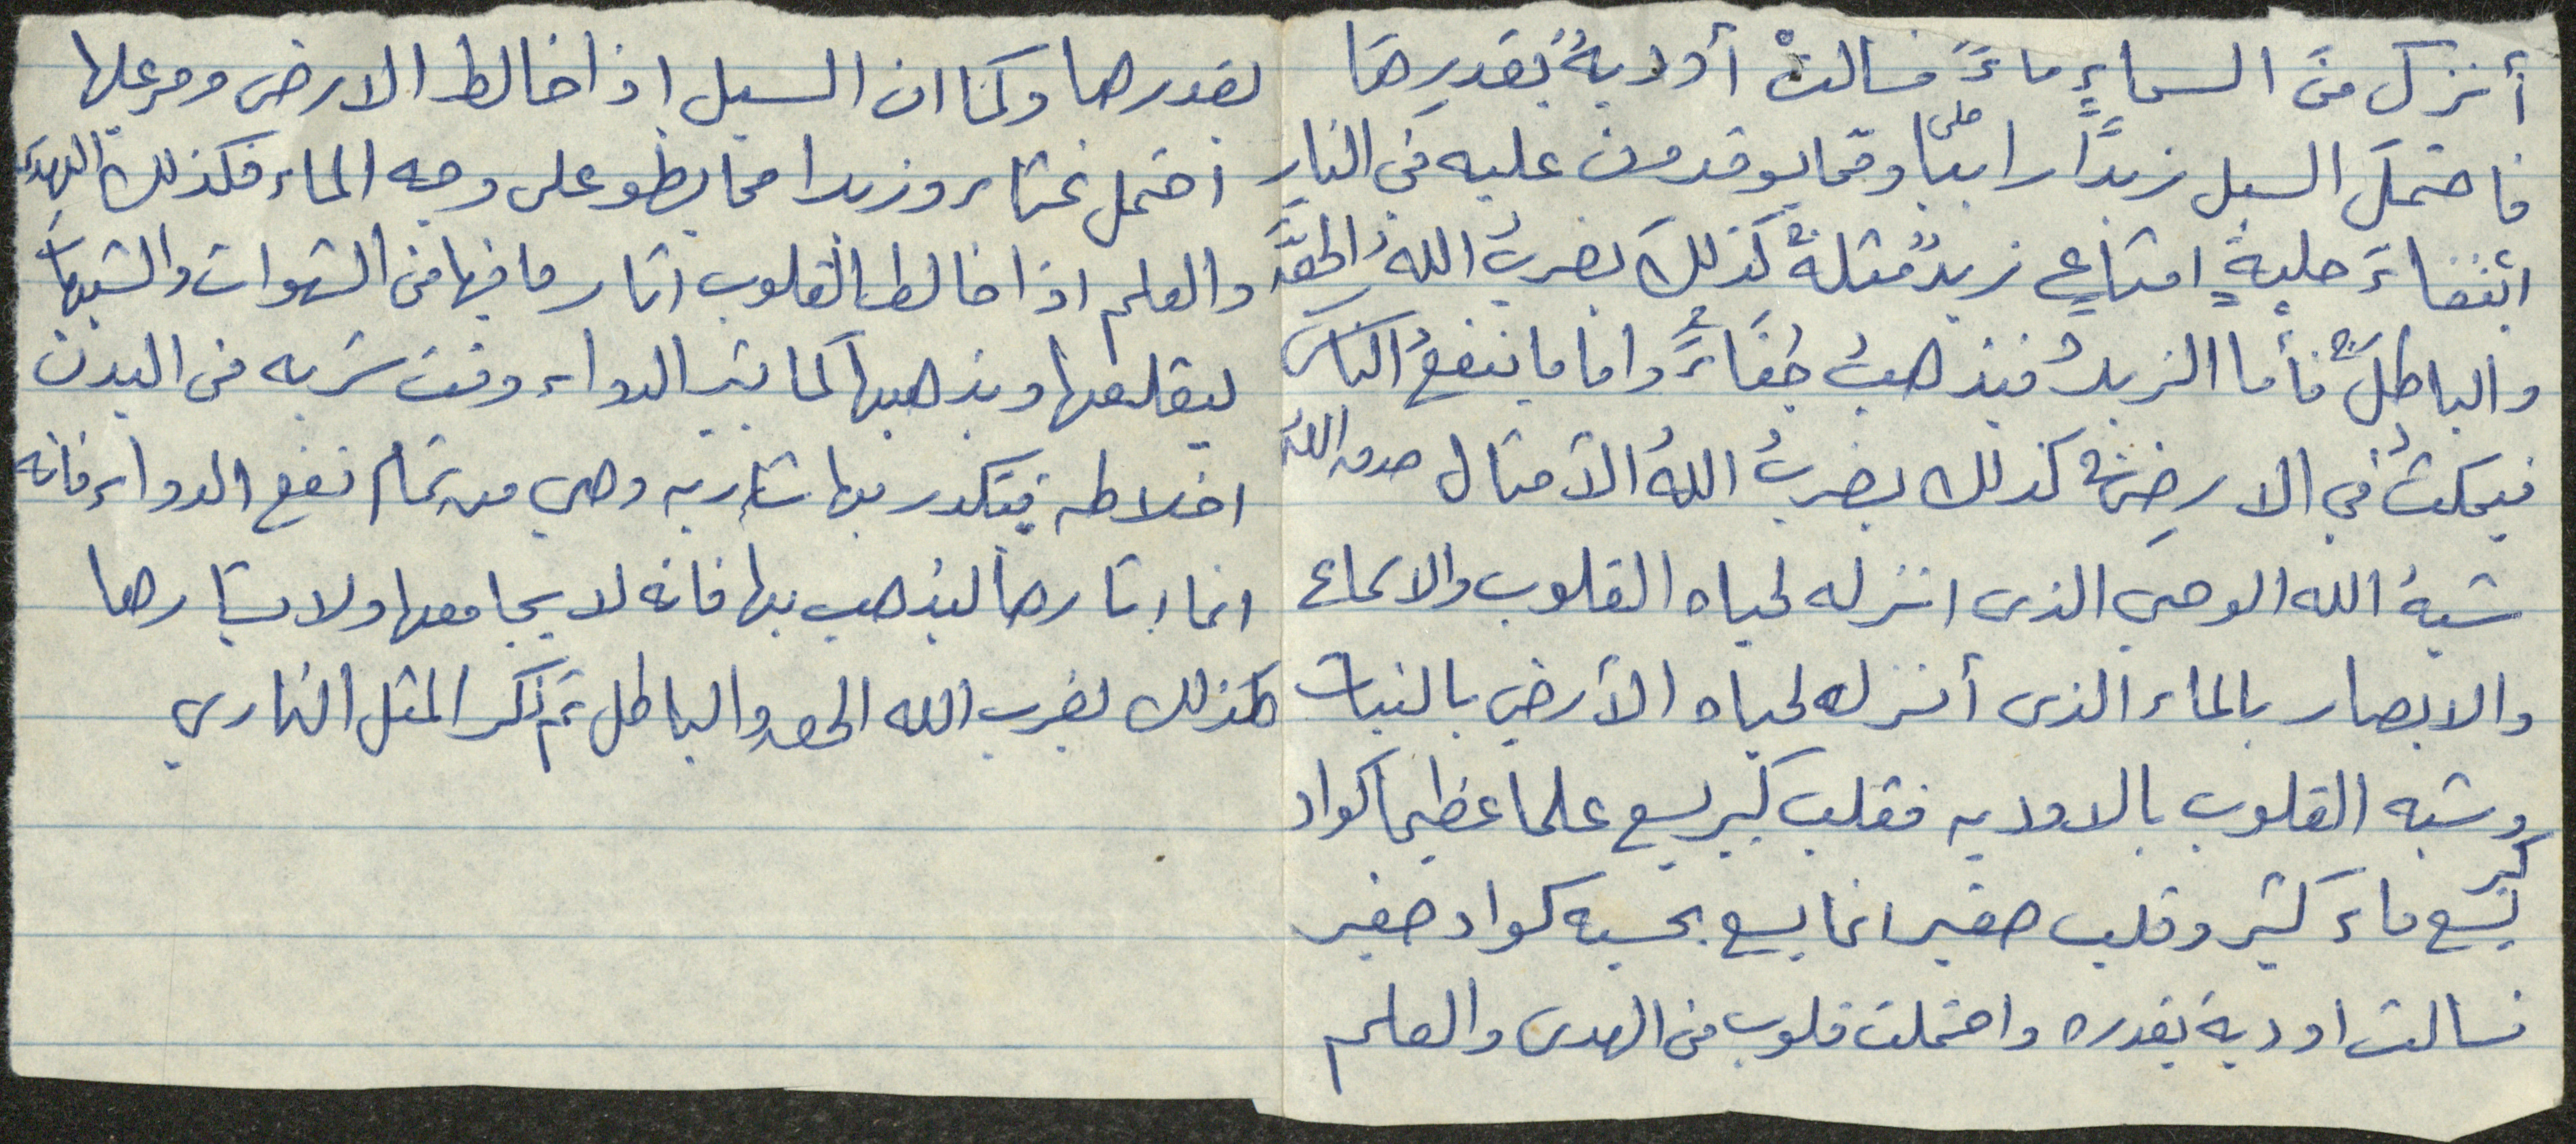 أنزل منَ السماءِ ماءً فسالتْ أوديةٌ بقدرِهَا
فاحتملَ السيل زبدًا رابيًا ومما يوقدون عليه فى النارِ
ابتغاءَ حليةٍ او متاعٍ زبدٌ مثلهُ كذلكَ يضربُ اللهُ الحقَّ
والباطلَ فأما الزبدُ فيذهبُ جُفَاءً واما ما ينفعُ الناسَ
فيمكثُ في الارضِ كذلك يضربُ اللهُ الأمثال صدق الله
شبهُ الله الوحي الذى انزله لحياه القلوب والاسماع
والابصار بالماء الذى أنزله لحياه الأرض بالنبات
وشبه القلوب بالاوديه فقلب كبير يسع علما عظيما كواد
كبير
يسع ماءَ كثير وقلب صغير انما يسع بحسبه كواد صغير
فسالت اودية بقدره واحتملت قلوب من الهدى والعلم
بقدرها وكما ان السيل اذا خالط الارض ومر عليها
احتمل غثاء وزبدا مما يطفو على وجه الماء فكذلك الهدى
والعلم اذا خالط القلوب اثار ما فيها من الشهوات والشبهات
ليقلعها ويذهبها كما يثير الدواء وقت شربه فى البدن
اخلاطه فيتكدر بها شاربه وهى من تمام نفع الدواء فانه
انما اثارها ليذهب بها فانه لا يجامعها ولا يشاركها
كذلك يضرب الله الحق والباطل ثم ذكر المثل النارى